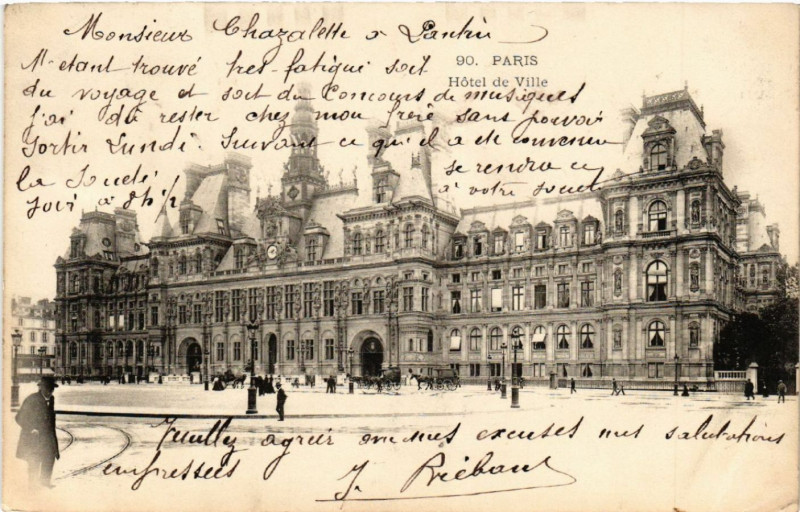 Monsieur Chazalette à Pantin
90. PARIS
Hôtel de Ville
M'etant trouvé tres-fatigué soit
du voyage et soit du Concours de musiques
j'ai dû rester chez mon frère sans pouvoir
Sortir Lundi. Suivant ce qu'il a ete convenu
la se rendra ce
soir à 8h ½ à votre
Veuillez agréer mes excuses mes salutations
empressées J. Riébaut